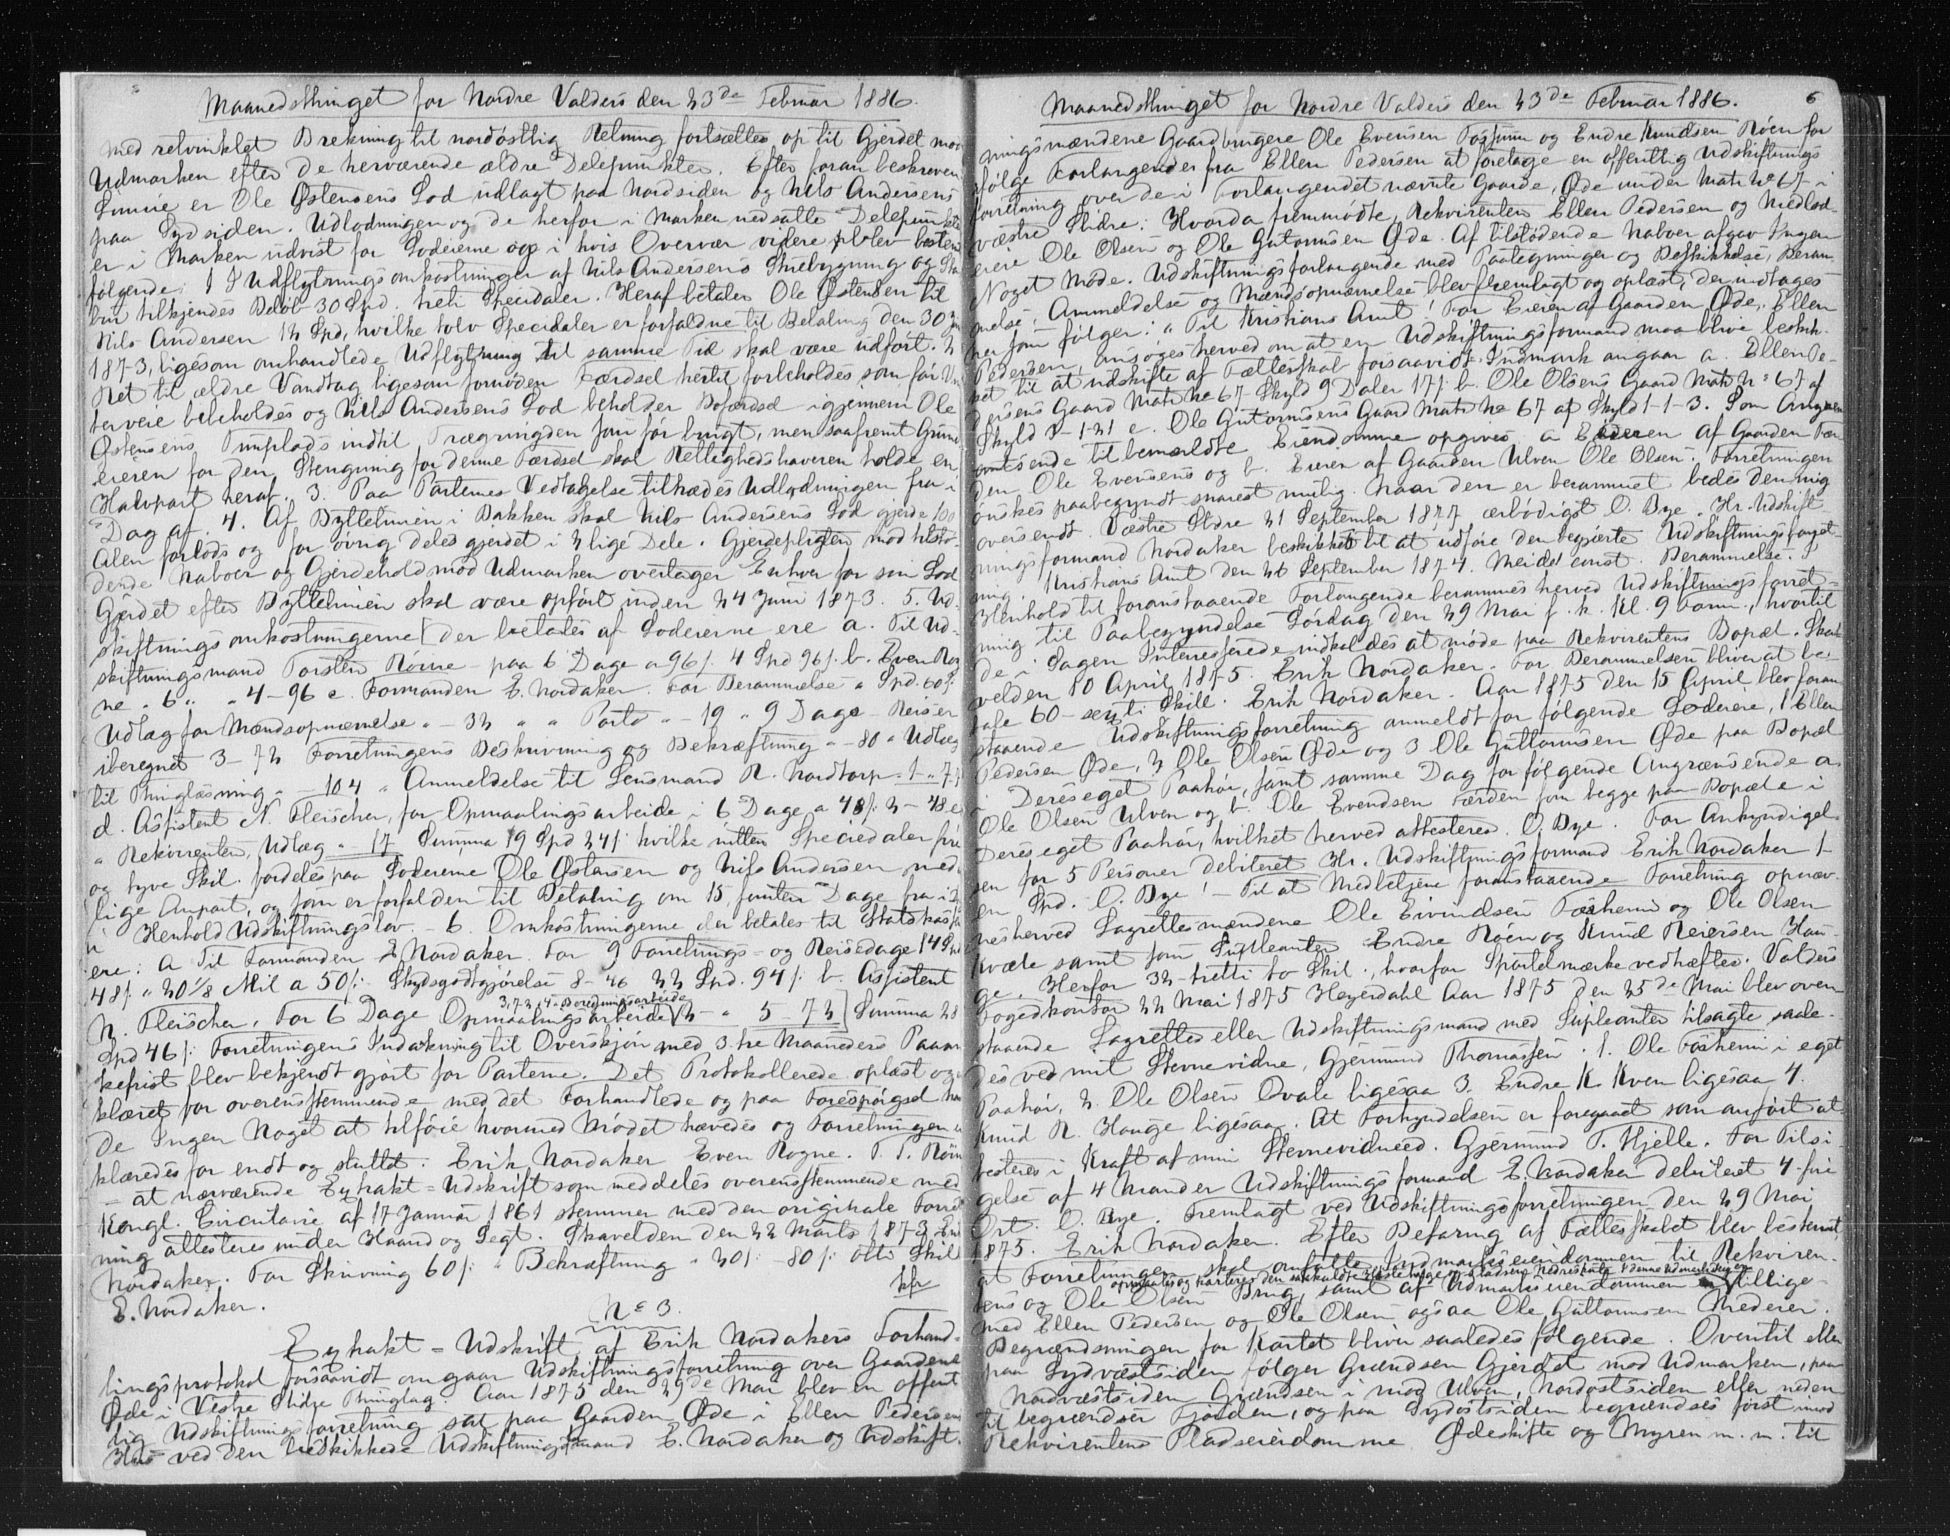 Maanedsthinget for Nordre Valders den 23de Februar 1886.
med retvinklet Brekning til nordøstlig Retning fortsættes op til Gjerdet mod
Udmarken efter de herværende ældre Delepunkter. Efter foran beskreven
Linnie er Ole Østensens Lod udlagt paa Nordsiden og Nils Andersens
paa Sydsiden. Udlodningen og de herfor i Marken nedsatte Delepunkter
er i Marken udvist for Lodeierne og i hvis Overvær videre blev bestemt
følgende: 1 I Udflytningsomkostninger af Nils Andersens Huebygning og
bur tilkjendes Beløb 30 Spd. treti Speciedaler. Heraf betaler Ole Østensen til
Nils Andersen 12 Spd, hvilke tolv Speciedaler er forfaldne til Betaling den 30
1873, ligesom omhandlede Udflytning til samme Tid skal være udført. 2
Ret til ældre Vandtag ligesom fornøden Færdsel hertil forbeholdes som før
terveie beholdes og Nils Andersens Lod beholder Bofærdsel igjennem Ole
Østensens Tunplads indtil Trægrinden som før brugt, men saafremt Grund
eieren før den Stengning for denne Færdsel skal Rettighedshaveren holde en
Halvpart heraf. 3. Paa Parternes Vedtagelse tiltrædes Udlodningen fra i
Dag af. 4. Af Byttelinien i Bakken skal Nils Andersens Lod gjerde 100
Alen forlods og for øvrig deles gjerdet i 2 lige Dele. Gjerdepligten mod tilstø-
dende Naboer og Gjerdehold mod Udmarken overtager Enhver for sin Lod
Gjerdet efter Byttelinien skal være opført inden 24 Juni 1873. 5. Ud-
skiftningsomkostningerne [der betales af Lodeierne ere a. Til Ud-
skiftningsmand Torsten Rørne - paa 6 Dage a 96/. 4 Spd 96/. b. Even Rog
ne " 6 " " 4-96 c. Formanden E. Nordaker. For Berammelse " Spd. 60/.
Udlæg for Mændsopnævnelse " - 32 " " Porto " - 19 " 9 Dage Reiser
iberegnet 3-72 Forretningens Beskrivning og Bekræftning " - 80 " Udlæg
til Thinglæsning " - 104 " Anmeldelse til Lensmand N. Nordtorp " 1 " 7
d. Assistent N. Fleischer, for Opmaalingsarbeide i 6 Dage a 48/. 2-48 e
" Rekvirenten, Udlæg " - 17 Summa 19 Spd 24/. hvilke nitten Speciedaler fire
og tyve Skil. fordeles paa Lodeierne Ole Østensen og Nils Andersen med
lige Anpart, og som er forfalden til Betaling om 15 femten Dage fra i
i Henhold Udskiftningslov. - 6. Omkostningerne der betales til Statskas
ere: a Til Formanden E Nordaker. For 9 Forretnings- og Reisedage 14 Spd
48/. " 20 1/8 Mil a 50/. Skydsgodtgjørelse 8-46 22 Spd. 94/. b. Assistent
N. Fleischer, For 6 Dage Opmaalingsarbeide 2 - " 5-72] Summa 28
Spd 46/. Forretningens Indankning til Overskjøn med 3 tre Maaneders Paaan-
kefrist blev bekjendt gjort for Parterne. Det Protokollerede oplæst og
klæret for overensstemmende med det Forhandlede og paa Forespørgsel hav
de Ingen Noget at tilføie hvormed Mødet hævedes og Forretningen
klæredes for endt og sluttet. Erik Nordaker Even Rogne. T. T. Rørn
- at nærværende Extrakt=Udskrift som meddeles overensstemmende med
Kongl. Circulaire af 17 Januar 1861 stemmer med den originale Forret
ning attesteres under Haand og Segl. Skavelden den 22 Marts 1873 Erik
Nordaker. For Skrivning 60/. " Bekræftning " 20/. - 80/. otti Skil
E. Nordaker.
No 3.
Extrakt = Udskrift af Erik Nordakers Forhand-
lingsprotokol forsaavidt omgaar Udskiftningsforretning over Gaardene
Øde i Vestre Slidre Thinglag. Aar 1875 den 29de Mai blev en offent
lig Udskiftningsforretning sat paa Gaarden Øde i Ellen Pedersens
Hus ved den beskikkede Udskiftningsformand E. Nordaker og Udskift-
Maanedsthinget for Nordre Valders den 23de Februar 1886. 6
ningsmændene Gaardbrugere Ole Evensen Fosheim og Endre Knudsen Røen for
ifølge Forlangende fra Ellen Pedersen at foretage en offentlig Udskiftnings
forretning over de i Forlangendet nævnte Gaarde, Øde under Matr No 67 i
vestre Slidre. Hvorda fremmødte Rekvirenten Ellen Pedersen og Medlod-
eiere Ole Olsen og Ole Gutormsen Øde. Af tilstødende Naboer afgav Ingen
Noget Møde. Udskiftningsforlangende med Paategninger og Beskikkelse, Beram-
melse, Anmeldelse og Mændsopnævnelse blev fremlagt og oplæst, der indtages
her som følger: "Til Kristians Amt! For Eieren af Gaarden Øde, Ellen
Pedersen, ansøges herved om at en Udskiftningsformand maa blive beskik-
ket til at udskifte af Fællesskab forsaavidt Indmark angaar a. Ellen Pe-
dersens Gaard Matr No 67 Skyld 9 Daler 17/. b. Ole Olsens Gaard Matr No 67 af
Skyld 1-1-21 c. Ole Gutormsens Gaard Matr No 67 af Skyld 1-1-3. Som Angræn
ændsende til bemældte Eiendomme opgives a Eieren af Gaarden Fær
den Ole Evensens og b. Eieren af Gaarden Ulven Ole Olsen. Forretningen
ønskes paabegyndt snarest mulig. Naar den er berammet bedes den mig
oversendt. Vestre Slidre 21 September 1877 ærbødigst O. Bye. Hr. Udskift
ningsformand Nordaker beskikket til at udføre den begjærte Udskiftningsforret-
ning. Kristians Amt den 26 September 1874. Meidel const. Berammelse. I
Henhold til foranstaaende Forlangende berammes herved Udskiftningsforret-
ning til Paabegyndelse Lørdag den 29 Mai f. k. Kl. 9 Form., hvortil
de i Sagen Interesserede indkaldes at møde paa Rekvirentens Bopæl. Ska-
velden 10 April 1875. Erik Nordaker. For Berammelsen bliver at be-
tale 60 - sexti Skill. Erik Nordaker. Aar 1875 den 15 April blev foran
staaende Udskiftningsforretning anmeldt for følgende Lodeiere, 1 Ellen
Pedersen Øde, 2 Ole Olsen Øde og 3 Ole Guttormsen Øde paa Bopæl
i Deres eget Paahør, samt samme Dag for følgende Angrænsende a
Ole Olsen Ulven og b. Ole Evendsen Færden som begge paa Bopæle i
Deres eget Paahør, hvilket herved attesteres. O. Bye. For Ankyndigel-
sen for 5 Personer debiteret Hr. Udskiftningsformand Erik Nordaker 1-
en Spd. O. Bye! - Til at Medbetjene foranstaaende Forretning opnæv-
nes herved Lagrettesmændene Ole Eivindsen Fosheim og Ole Olsen
Kvale samt som Suppleanter Endre Røen og Knud Reiersen Hau-
ge. Herfor 32 - tretti to Skil., hvorfor Sportelmærke vedhæftes. Valders
Fogedkontor 22 Mai 1875 Heyerdahl Aar 1875 den 25de Mai blev oven-
staaende Lagrettes eller Udskiftningsmænd med Supleanter tilsagte saale-
des ved mit Stevnevidne, Gjermund Thomassen: 1. Ole Fosheim i eget
Paahør, 2. Ole Olsen Qvale ligesaa 3. Endre K. Røen ligesaa 4.
Knud R. Hauge ligesaa. At Forkyndelsen er foregaaet som anført at-
testeres i Kraft af min Stevnevidneed. Gjermund T. Hjelle. For Tilsi-
gelse af 4 Mander Udskiftningsformand E. Nordaker debiteret 4-fire
Ort. O. Bye. Fremlagt ved Udskiftningsforretningen den 29 Mai
1875. Erik Nordaker. Efter Befaring af Fællesskabet blev bestemt,
at Forretningen skal omfatte Indmarkseiendommen til Rekviren-
tens og Ole Olsens Brug, samt af Udmarkseiendommen tillige-
med Ellen Pedersen og Ole Olsen ogsaa Ole Guttormsen Medeier.
Begrændsningen for Kartet bliver saaledes følgende. Oventil eller
paa Sydvestsiden følger Grændsen Gjerdet mod Udmarken, paa
Nordvestsiden Grændsen i mod Ulven, Nordostsiden eller neden
til begrændser Fjorden, og paa Sydostsiden begrændses først mod
Rekvirentens Pladseeiendomme Ødeskifte og Myren m. m. til